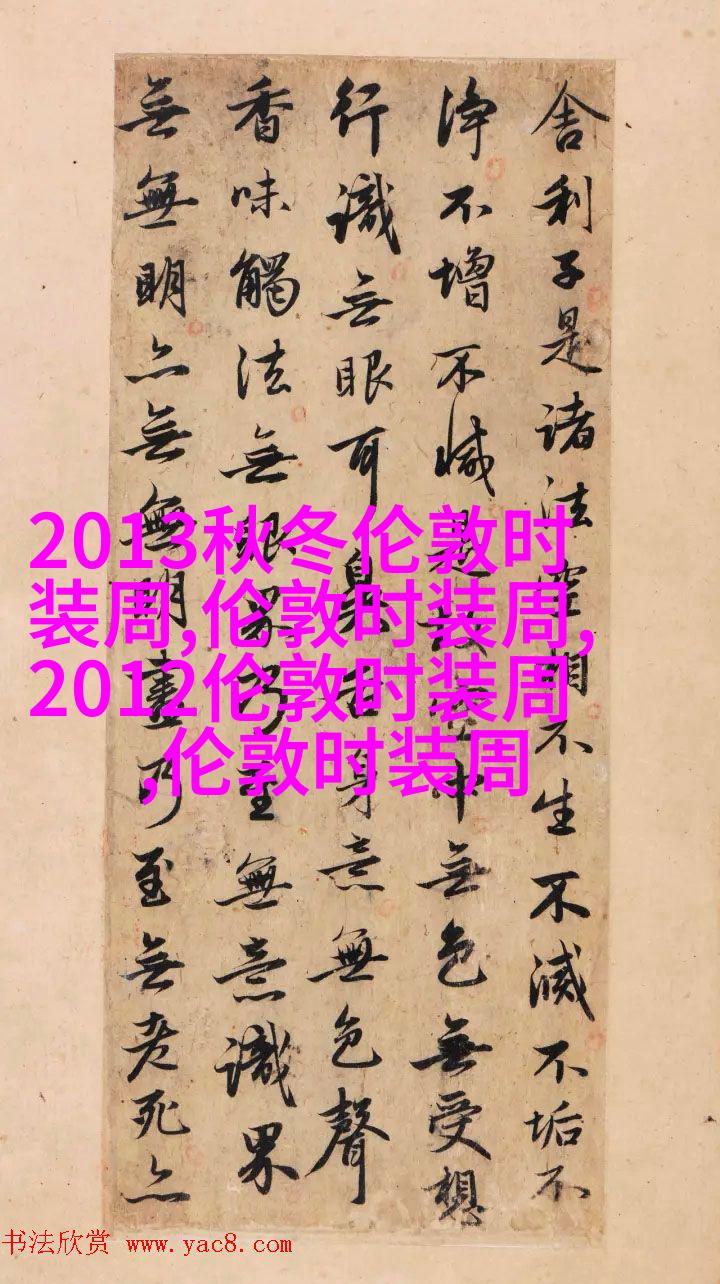 舍利子是诸法空相不生不滅不垢不
淨不增不減是故空中無色無受想
行識無眼耳鼻舌身意無色聲
香味觸法無眼界乃至無意識界
無無明亦無無明盡乃至無老死亦
2013秋冬伦敦时
装周,伦敦时装周,
2012伦敦时装周
,伦敦时装周
书法欣赏 www.yac8.com